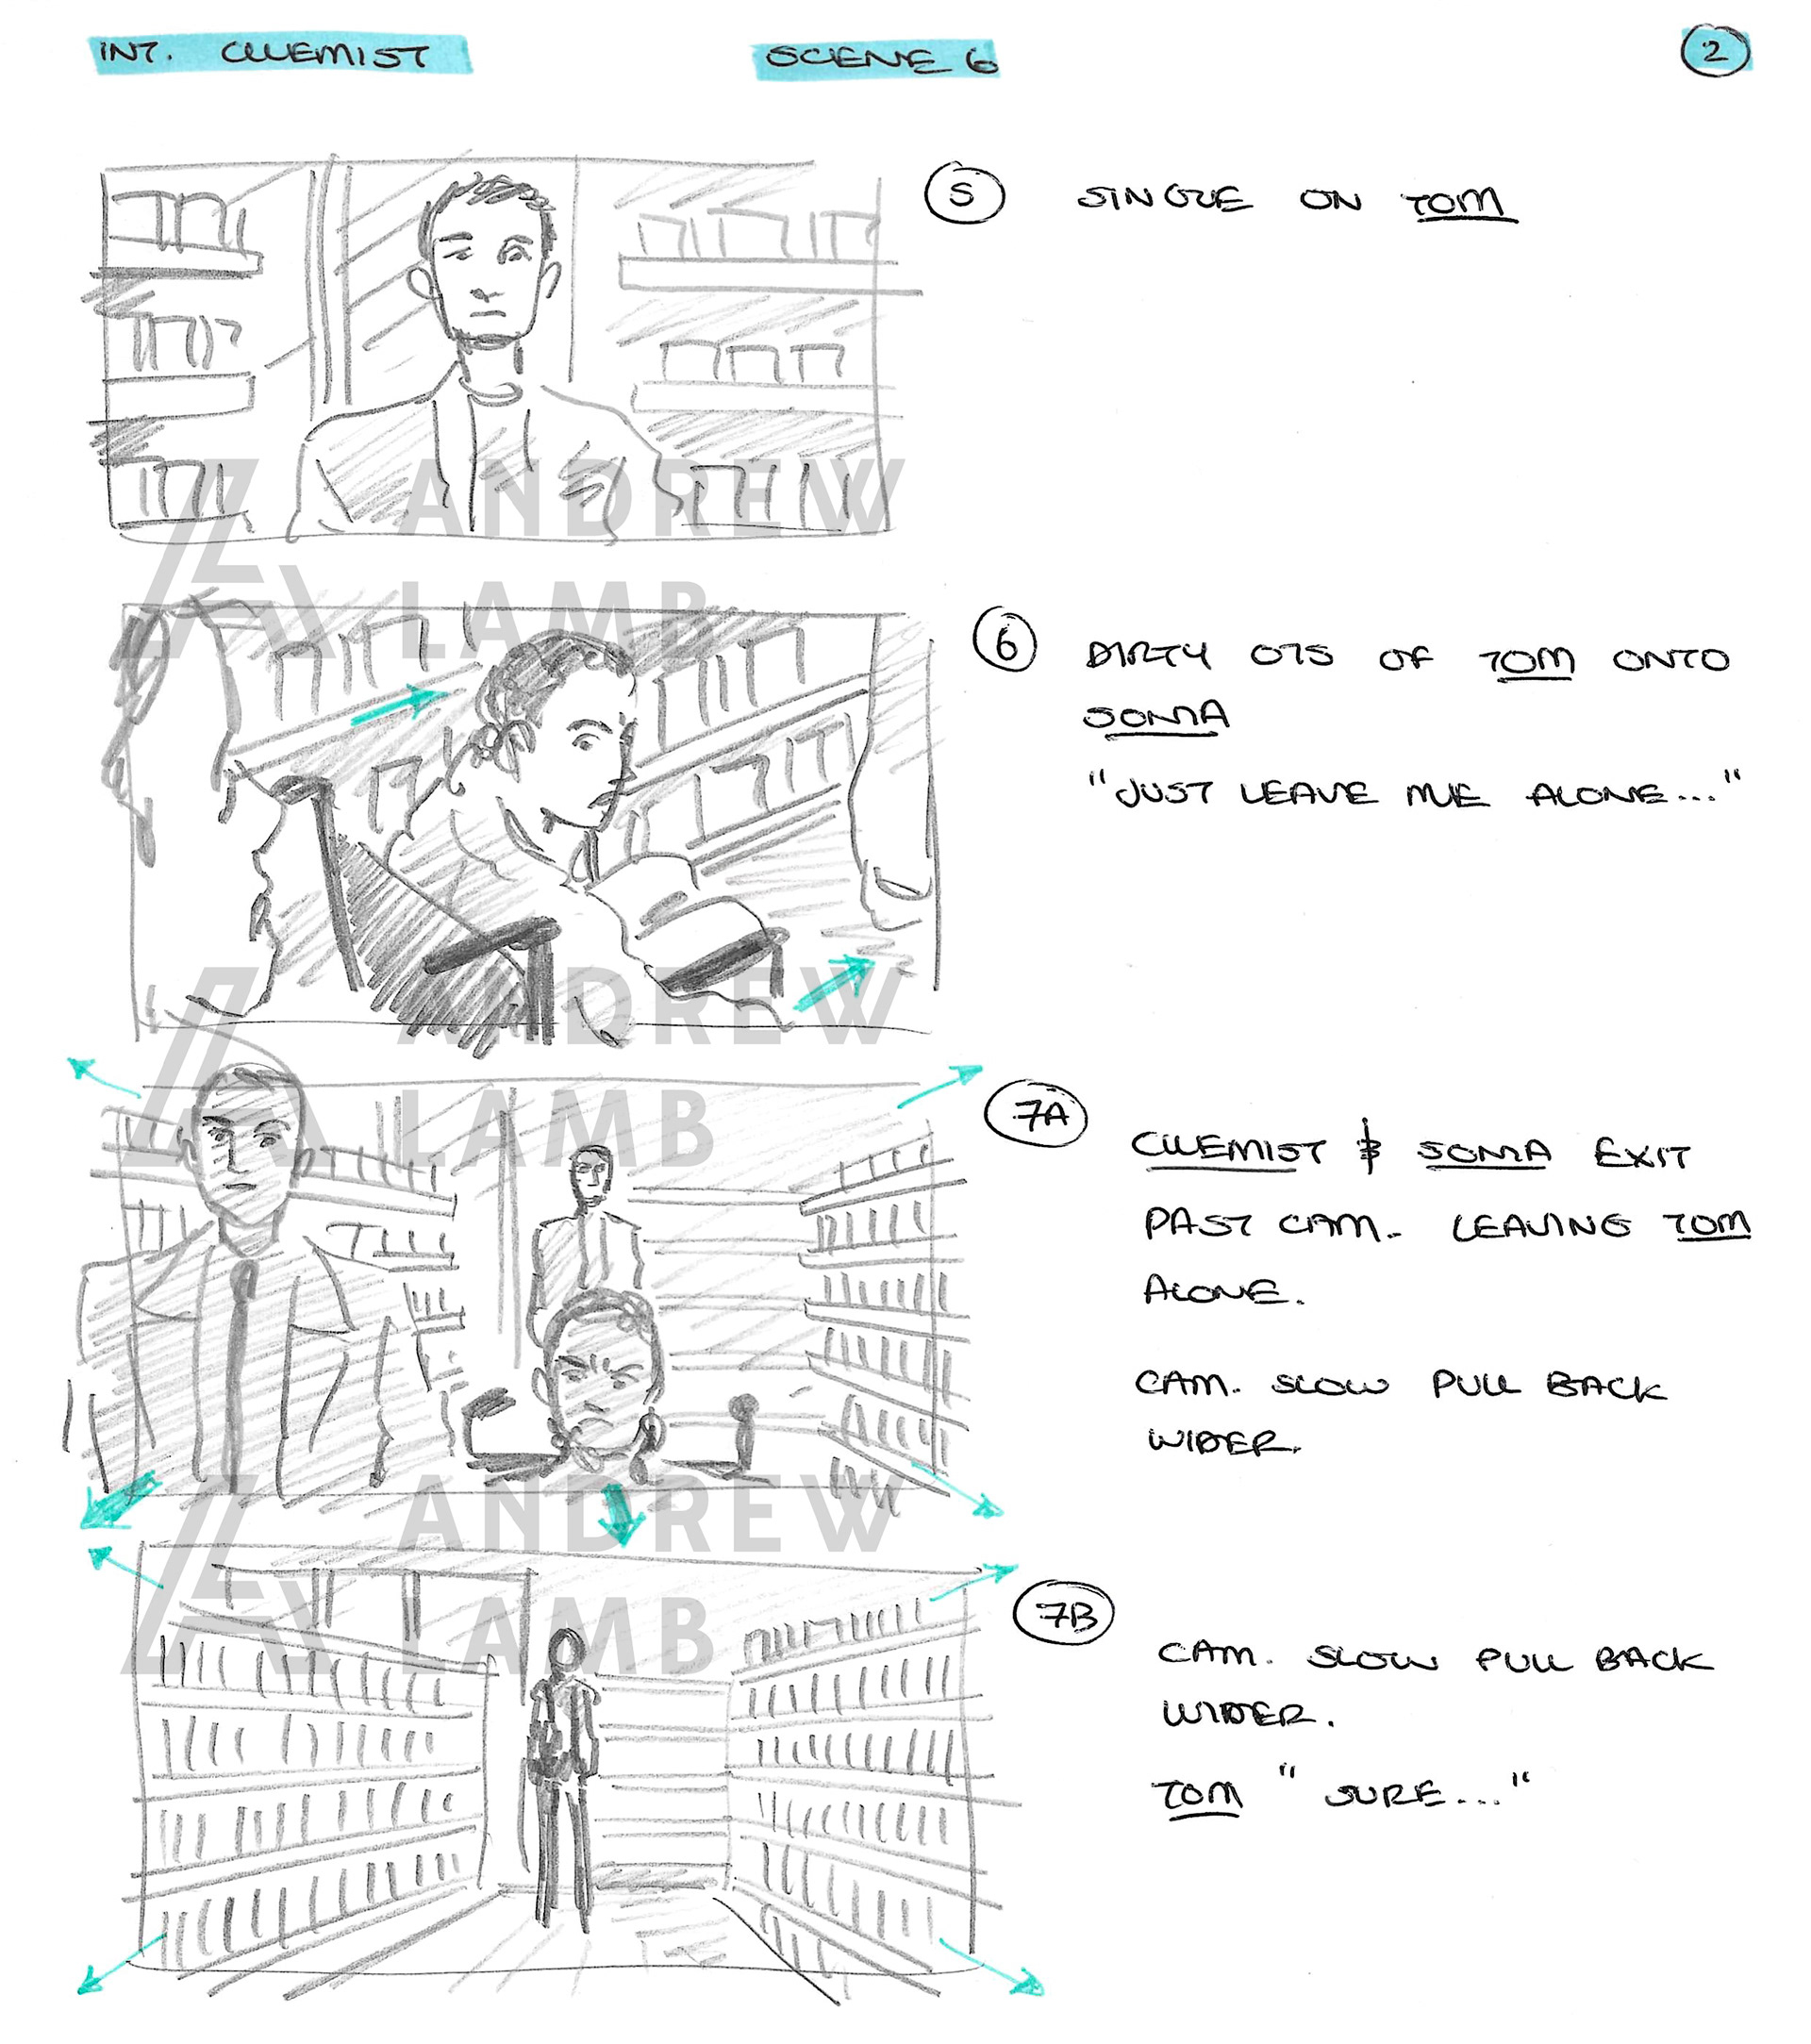 INT. CHEMIST
SCENE 6
2
5 SINGLE ON TOM
6 DIRTY OTS OF TOM ONTO
SONIA
"JUST LEAVE ME ALONE..."
7A CHEMIST & SONIA EXIT
PAST CAM. LEAVING TOM
ALONE.
CAM. SLOW PULL BACK
WIDER.
7B CAM. SLOW PULL BACK
WIDER.
TOM "SURE..."
ANDREW
LAMB
ANDREW
LAMB
ANDREW
LAMB